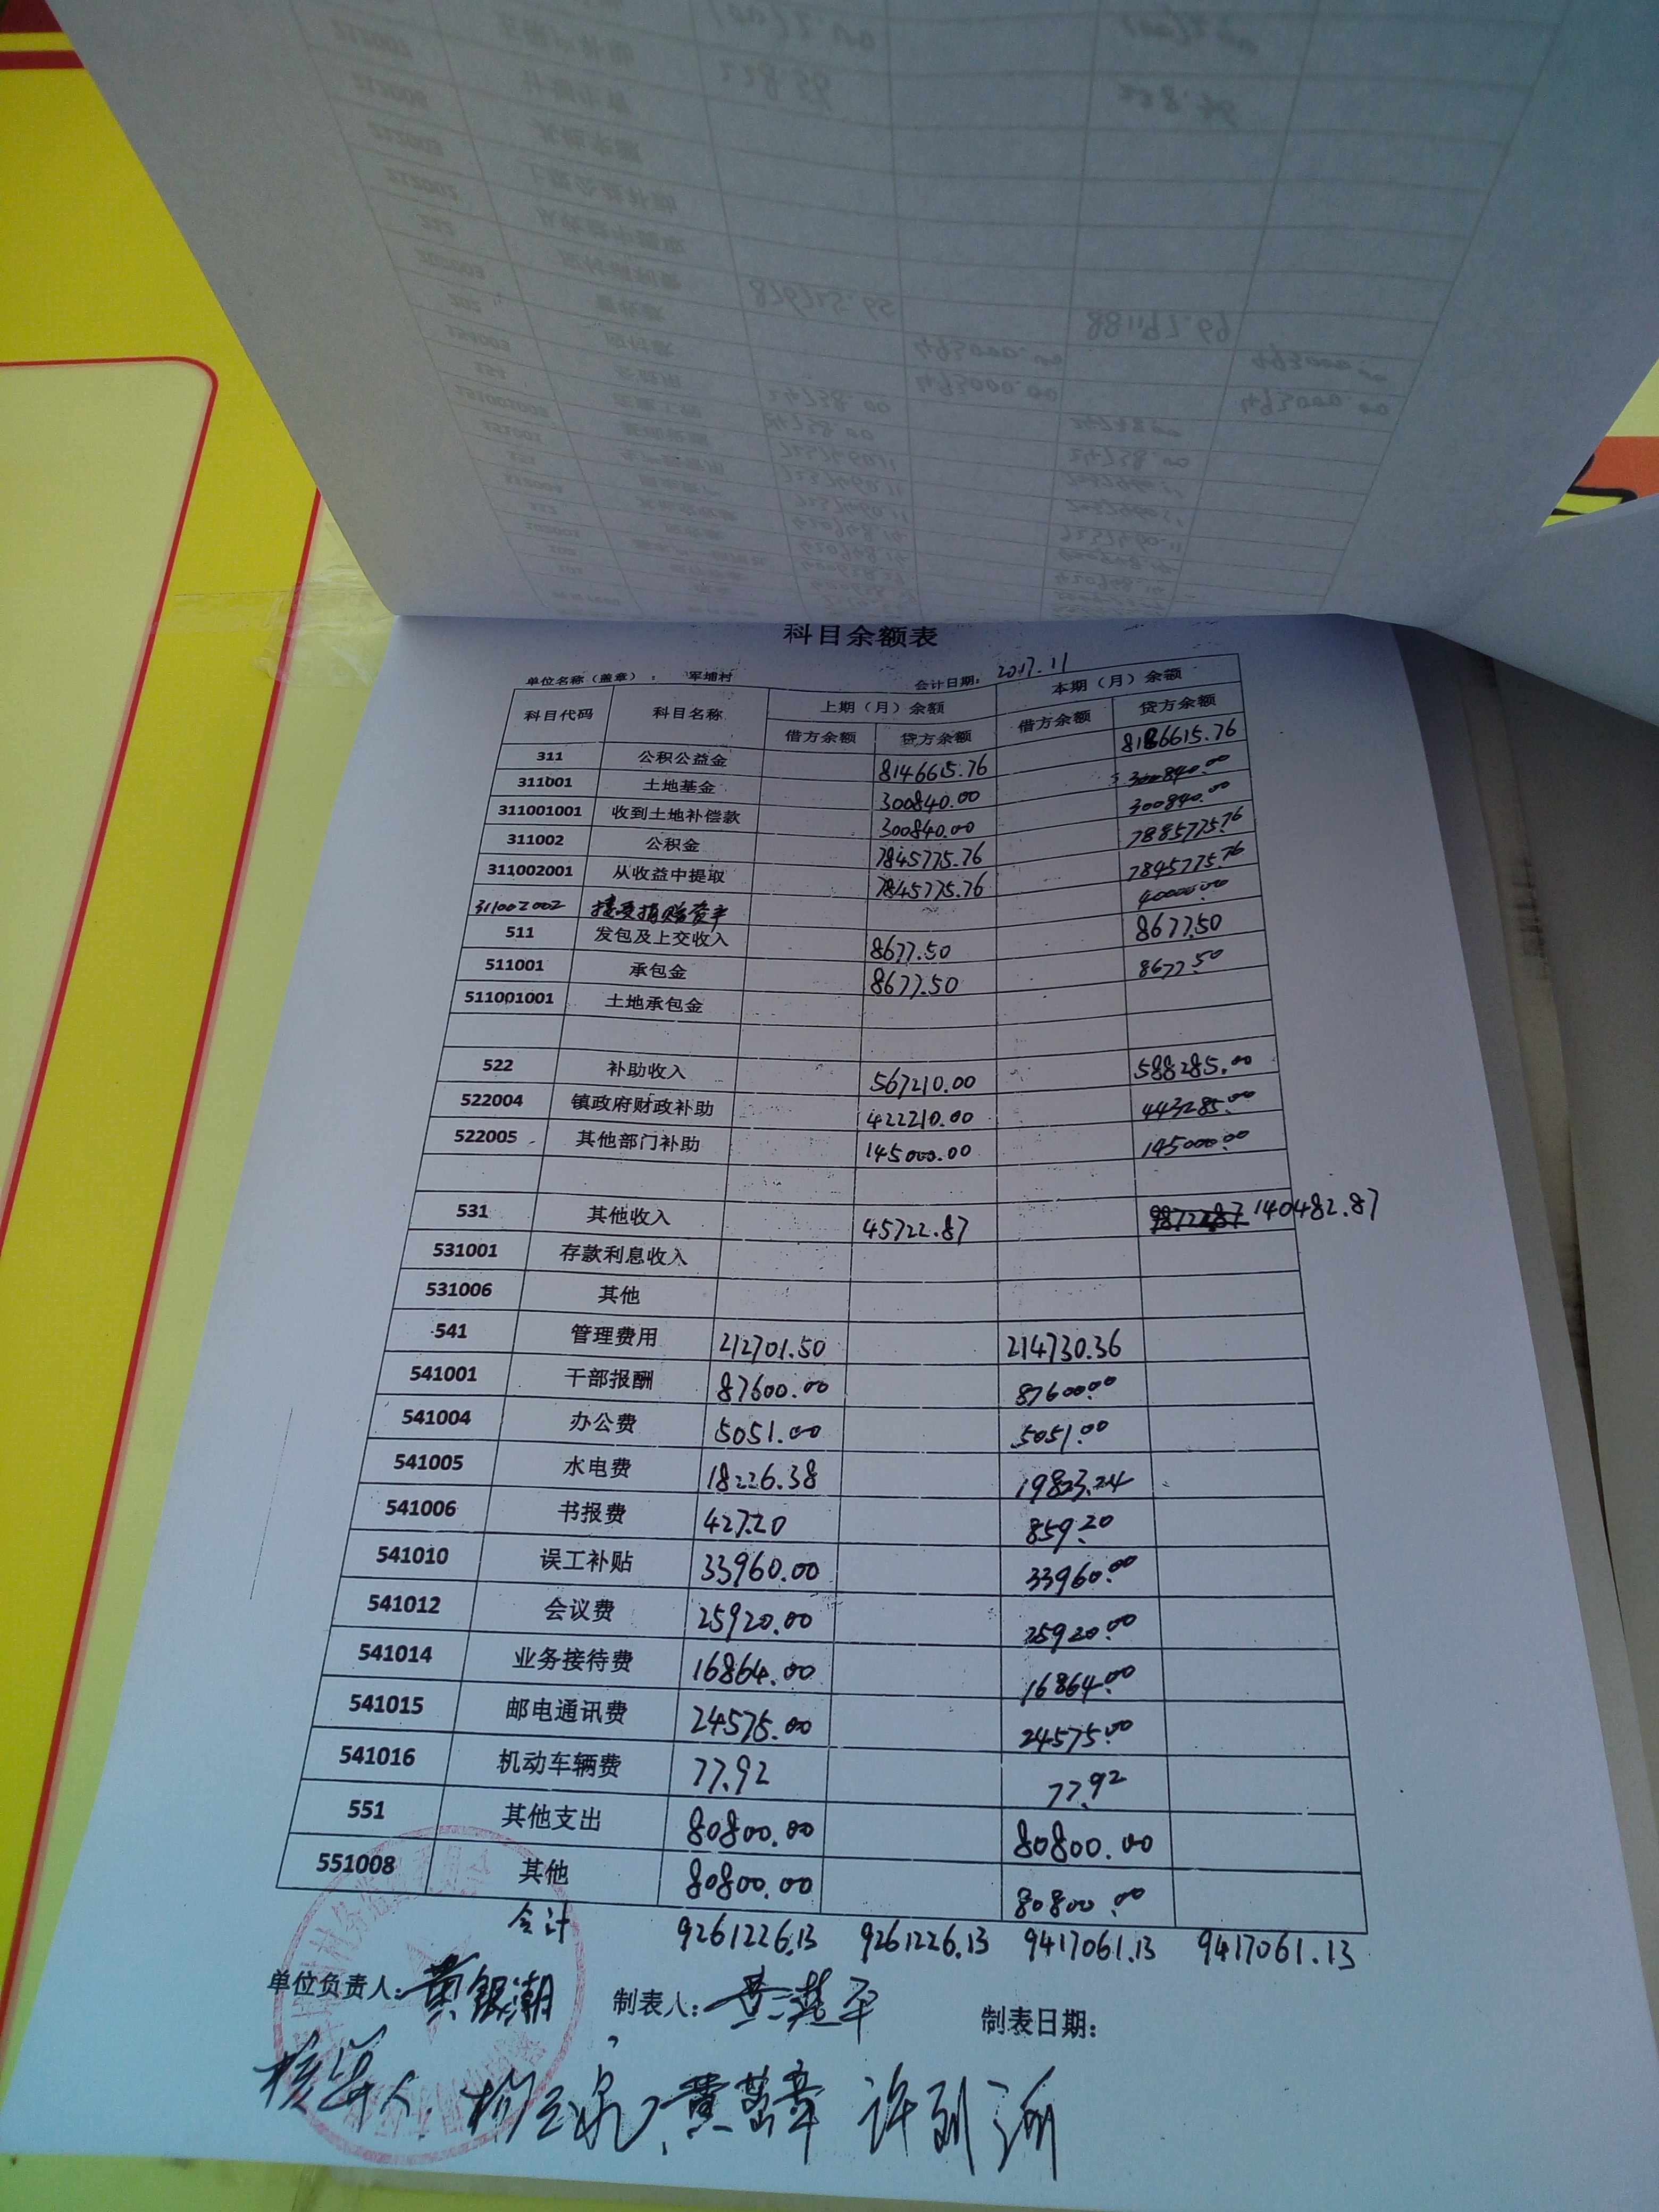 科目余额表
单位名称（盖章）： 军埔村 会计日期：2017.11
科目代码 科目名称 上期（月）余额 本期（月）余额
借方余额 贷方余额 借方余额 贷方余额
311 公积公益金 8146615.76 8186615.76
311001 土地基金 300840.00 300840.00
311001001 收到土地补偿款 300840.00 300840.00
311002 公积金 7845775.76 7885775.76
311002001 从收益中提取 7845775.76 7845775.76
311002002 接受捐赠资产 40000.00
511 发包及上交收入 8677.50 8677.50
511001 承包金 8677.50 8677.50
511001001 土地承包金
522 补助收入 567210.00 588285.00
522004 镇政府财政补助 422210.00 443285.00
522005 其他部门补助 145000.00 145000.00
531 其他收入 45722.87 140482.87
531001 存款利息收入
531006 其他
541 管理费用 212701.50 214730.36
541001 干部报酬 87600.00 87600.00
541004 办公费 5051.00 5051.00
541005 水电费 18226.38 19823.24
541006 书报费 427.20 859.20
541010 误工补贴 33960.00 33960.00
541012 会议费 25920.00 25920.00
541014 业务接待费 16864.00 16864.00
541015 邮电通讯费 24575.00 24575.00
541016 机动车辆费 77.92 77.92
551 其他支出 80800.00 80800.00
551008 其他 80800.00 80800.00
合计 9261226.13 9261226.13 9417061.13 9417061.13
单位负责人：黄银潮 制表人： 制表日期：